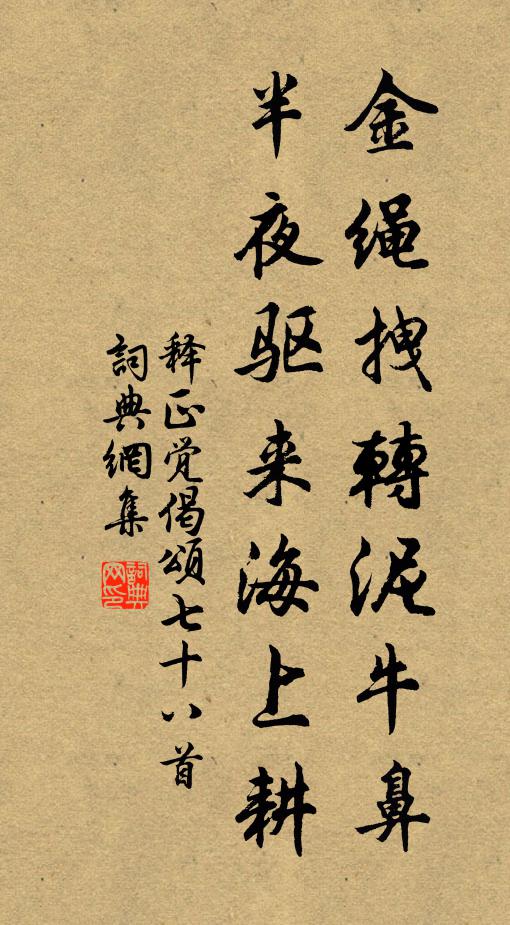 金绳拽轉泥牛鼻
半夜驱来海上耕
释正觉偈頌七十八首
詞典網集
詞典网印